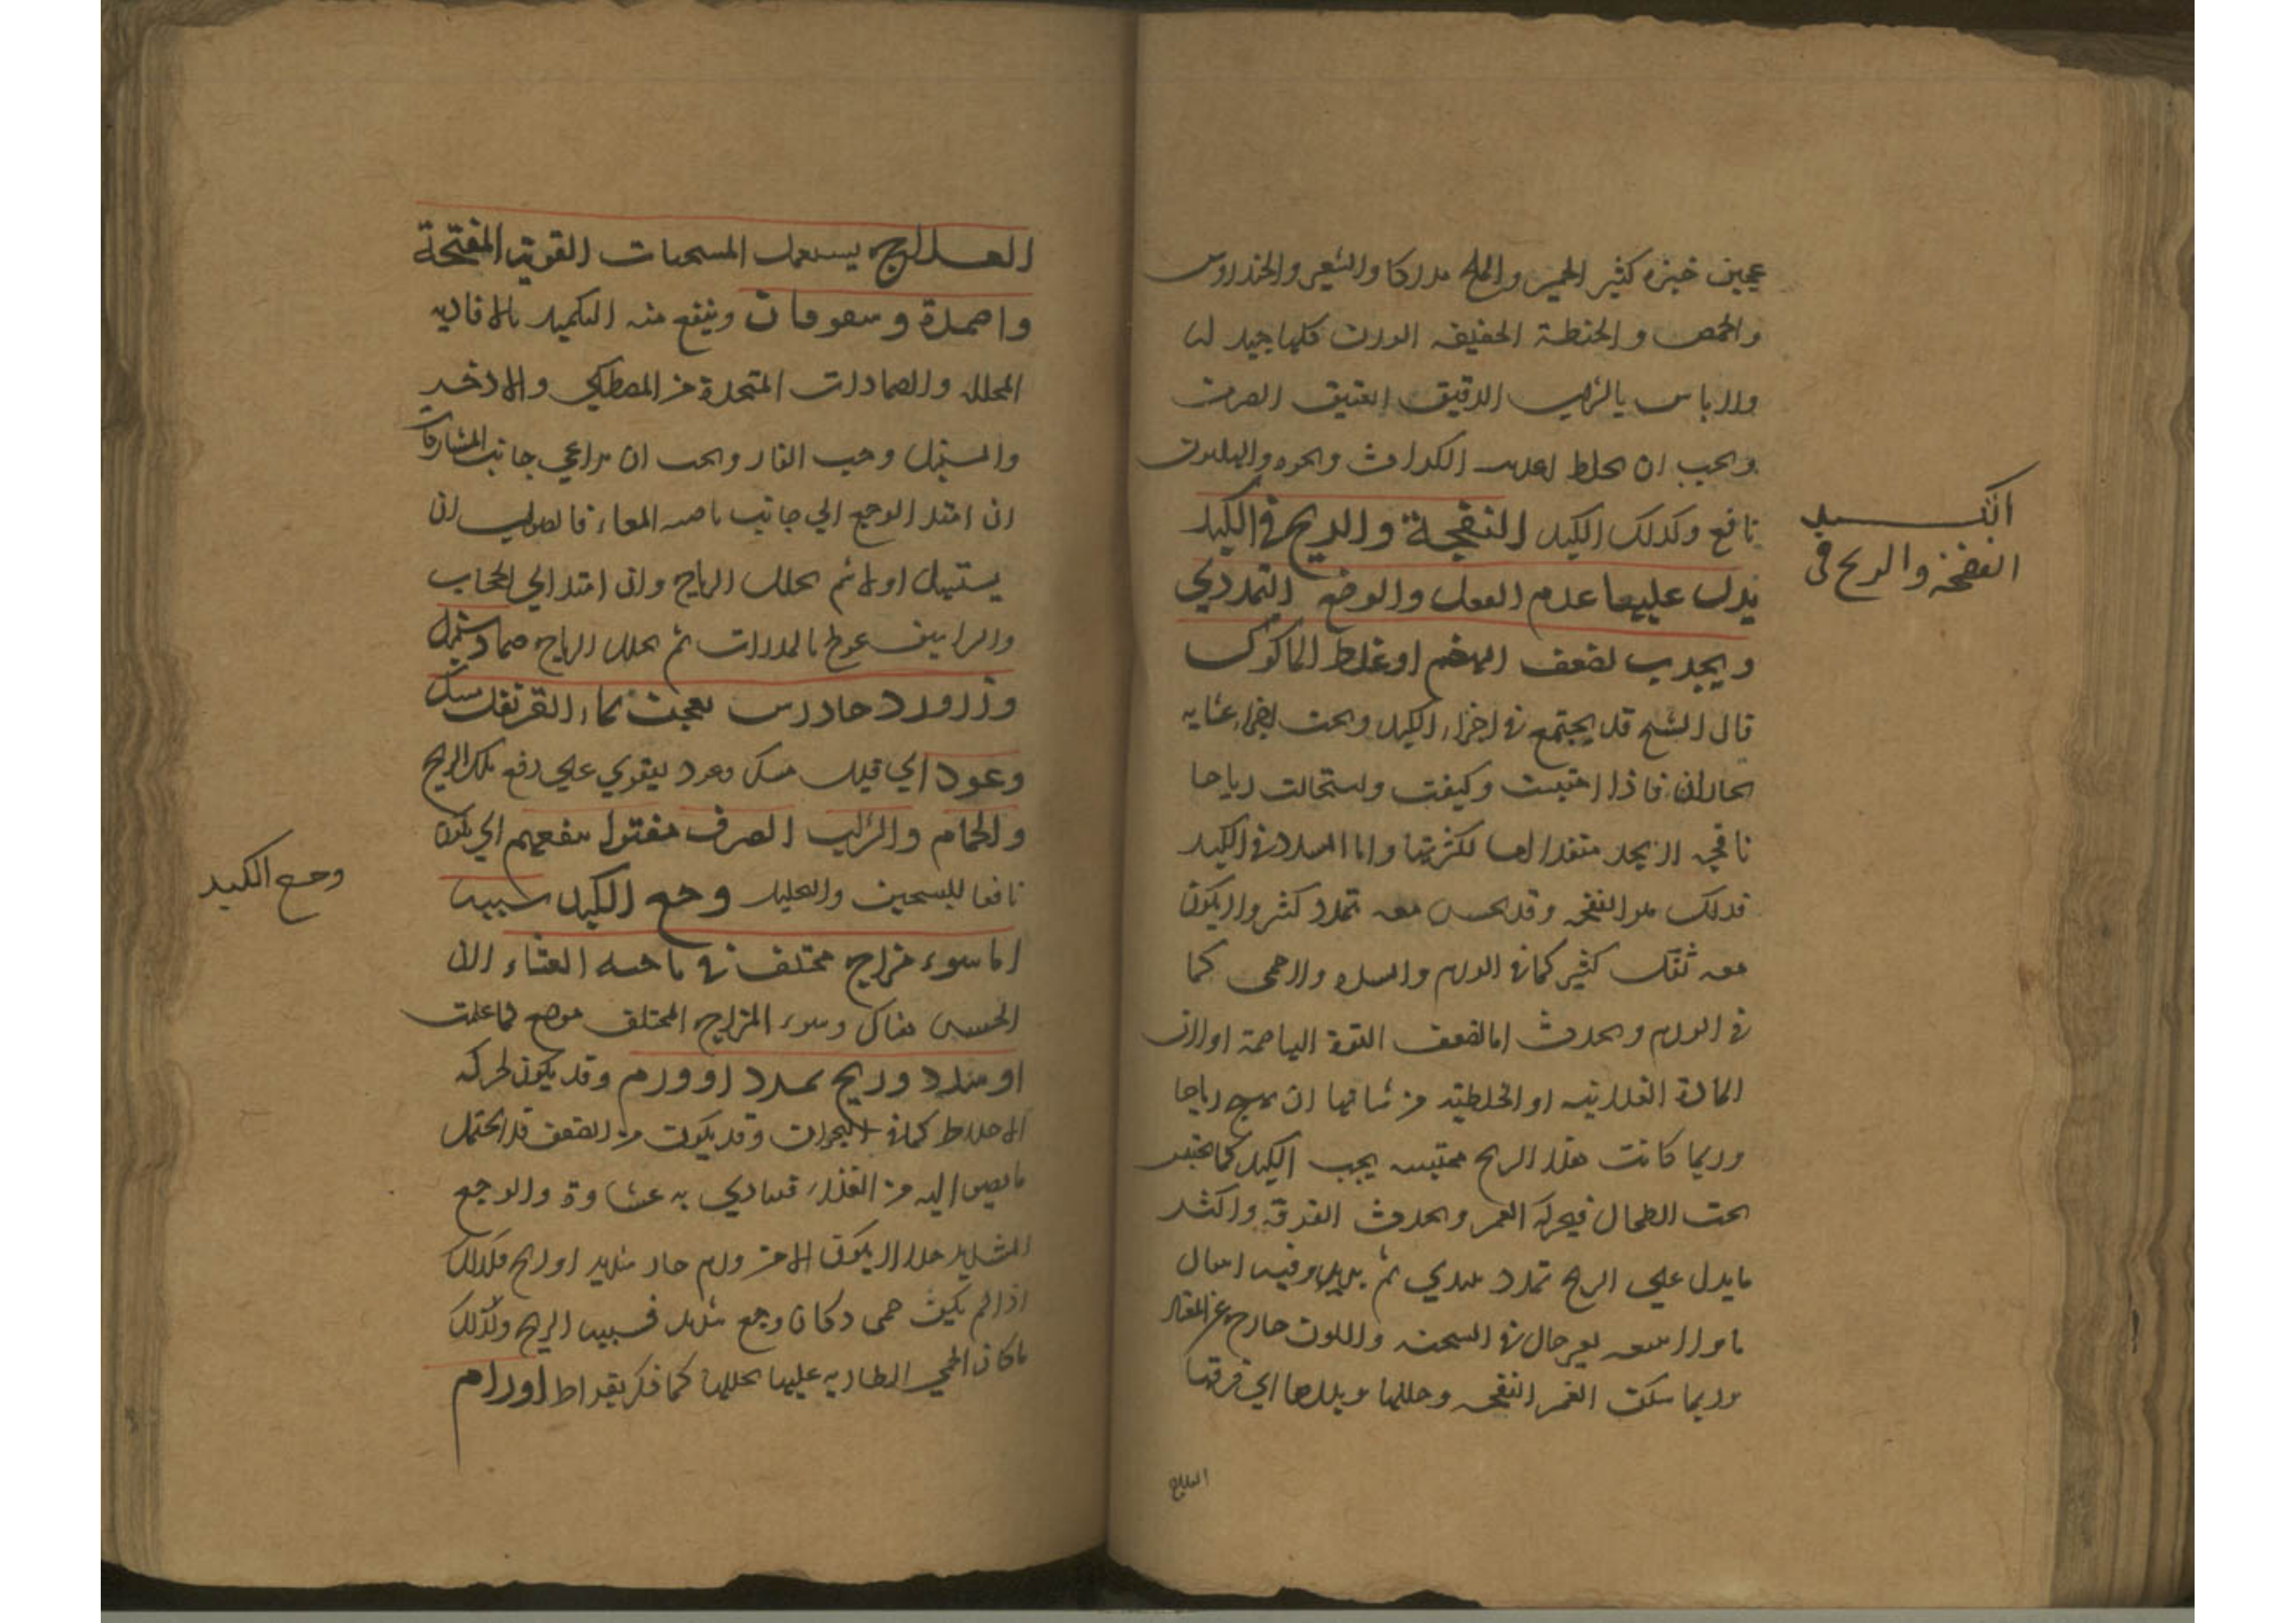 عجين خبزه كثير الخمير والملح مدركا والشعير والخندروس
والحمص والحنطة الخفيفه الوزن كلها جيد له
ولا باس بالشراب الرقيق العتيق الصرف
ويجب ان يخلط الكراث ونحوه والهليون
نافع وكذلك الكبد النفخة والريح في الكبد
يدل عليها عدم الثقل والوجع التمددي
ويحدث لضعف الهضم او غلظ الماكول
قال الشيخ قد يجتمع في اجزاء الكبد وتحت اجزاء غشايه
بخارات فاذا احتبست وكثفت واستحالت رياحا
نافخه لا يجد منفذا لها لكثرتها واما السدد في الكبد
فذلك هو النفخه وقد يحس معه تمدد كثير ولا يكون
معه ثقل كثير كما في الورم والسدد ولا حمى كما
في الورم ويحدث اما لضعف القوة الهاضمة او لان
المادة الغذائيه او الخلطيه من شانها ان رياحا
وربما كانت هذه الريح محتبسه تحت الكبد كما تحتبس
تحت الطحال فيحركه الغمز ويحدث القرقره واكثر
ما يدل على الريح تمدد يبتدي ثم يزيد وفيه انتقال
ما ولا يتبعه تغير حال في السحنه واللون خارج عن المعتاد
وربما سكن الغمز النفخه وحللها وبددها اي فرقها
العلاج
الكبد
النفخة والريح في
العلاج يستعمل المسخنات القوية المفتحة
واضمدة وسفوفات وينفع منه التكميد بالافاويه
المحلله والضمادات المتخذة من المصطكي والاذخر
والسنبل وحب الغار ويجب ان يراعي جانب المشاركات
ان امتد الوجع الي جانب ناحيه المعاء فالصواب ان
يستهل اولا ثم تحلل الرياح وان امتد الي الحجاب
والشراسيف عولج بالمدرات ثم تحلل الرياح ضماد سنبل
وزرورد جاورس يعجن بماء القرنفل مسك
وعود اي قليل مسك وعود ليقوي علي دفع تلك الريح
والحمام والشراب الصرف مفتولا ينفعهم اي يكون
نافعا للتسخين والتحليل وجع الكبد سببه
اما سوء مزاج مختلف في ناحيه الغشاء لان
الحس هناك وسوء المزاج المختلف موجع كما علمت
او سدد وريح يمدد او ورم وقد يكون لحركه
الاخلاط كما في البحران وقد يكون من الضعف فلا يحتمل
ما يصير اليه من الغذاء فيتاذي به غشاوه والوجع
الشديد جدا لا يكون الا من ورم حار شديد او ريح فلذلك
اذا لم يكن حمى وكان وجع شديد فسببه الريح ولذلك
ما كان الحمي الطاريه عليها تحللها كما ذكر بقراط اورام
وجع الكبد